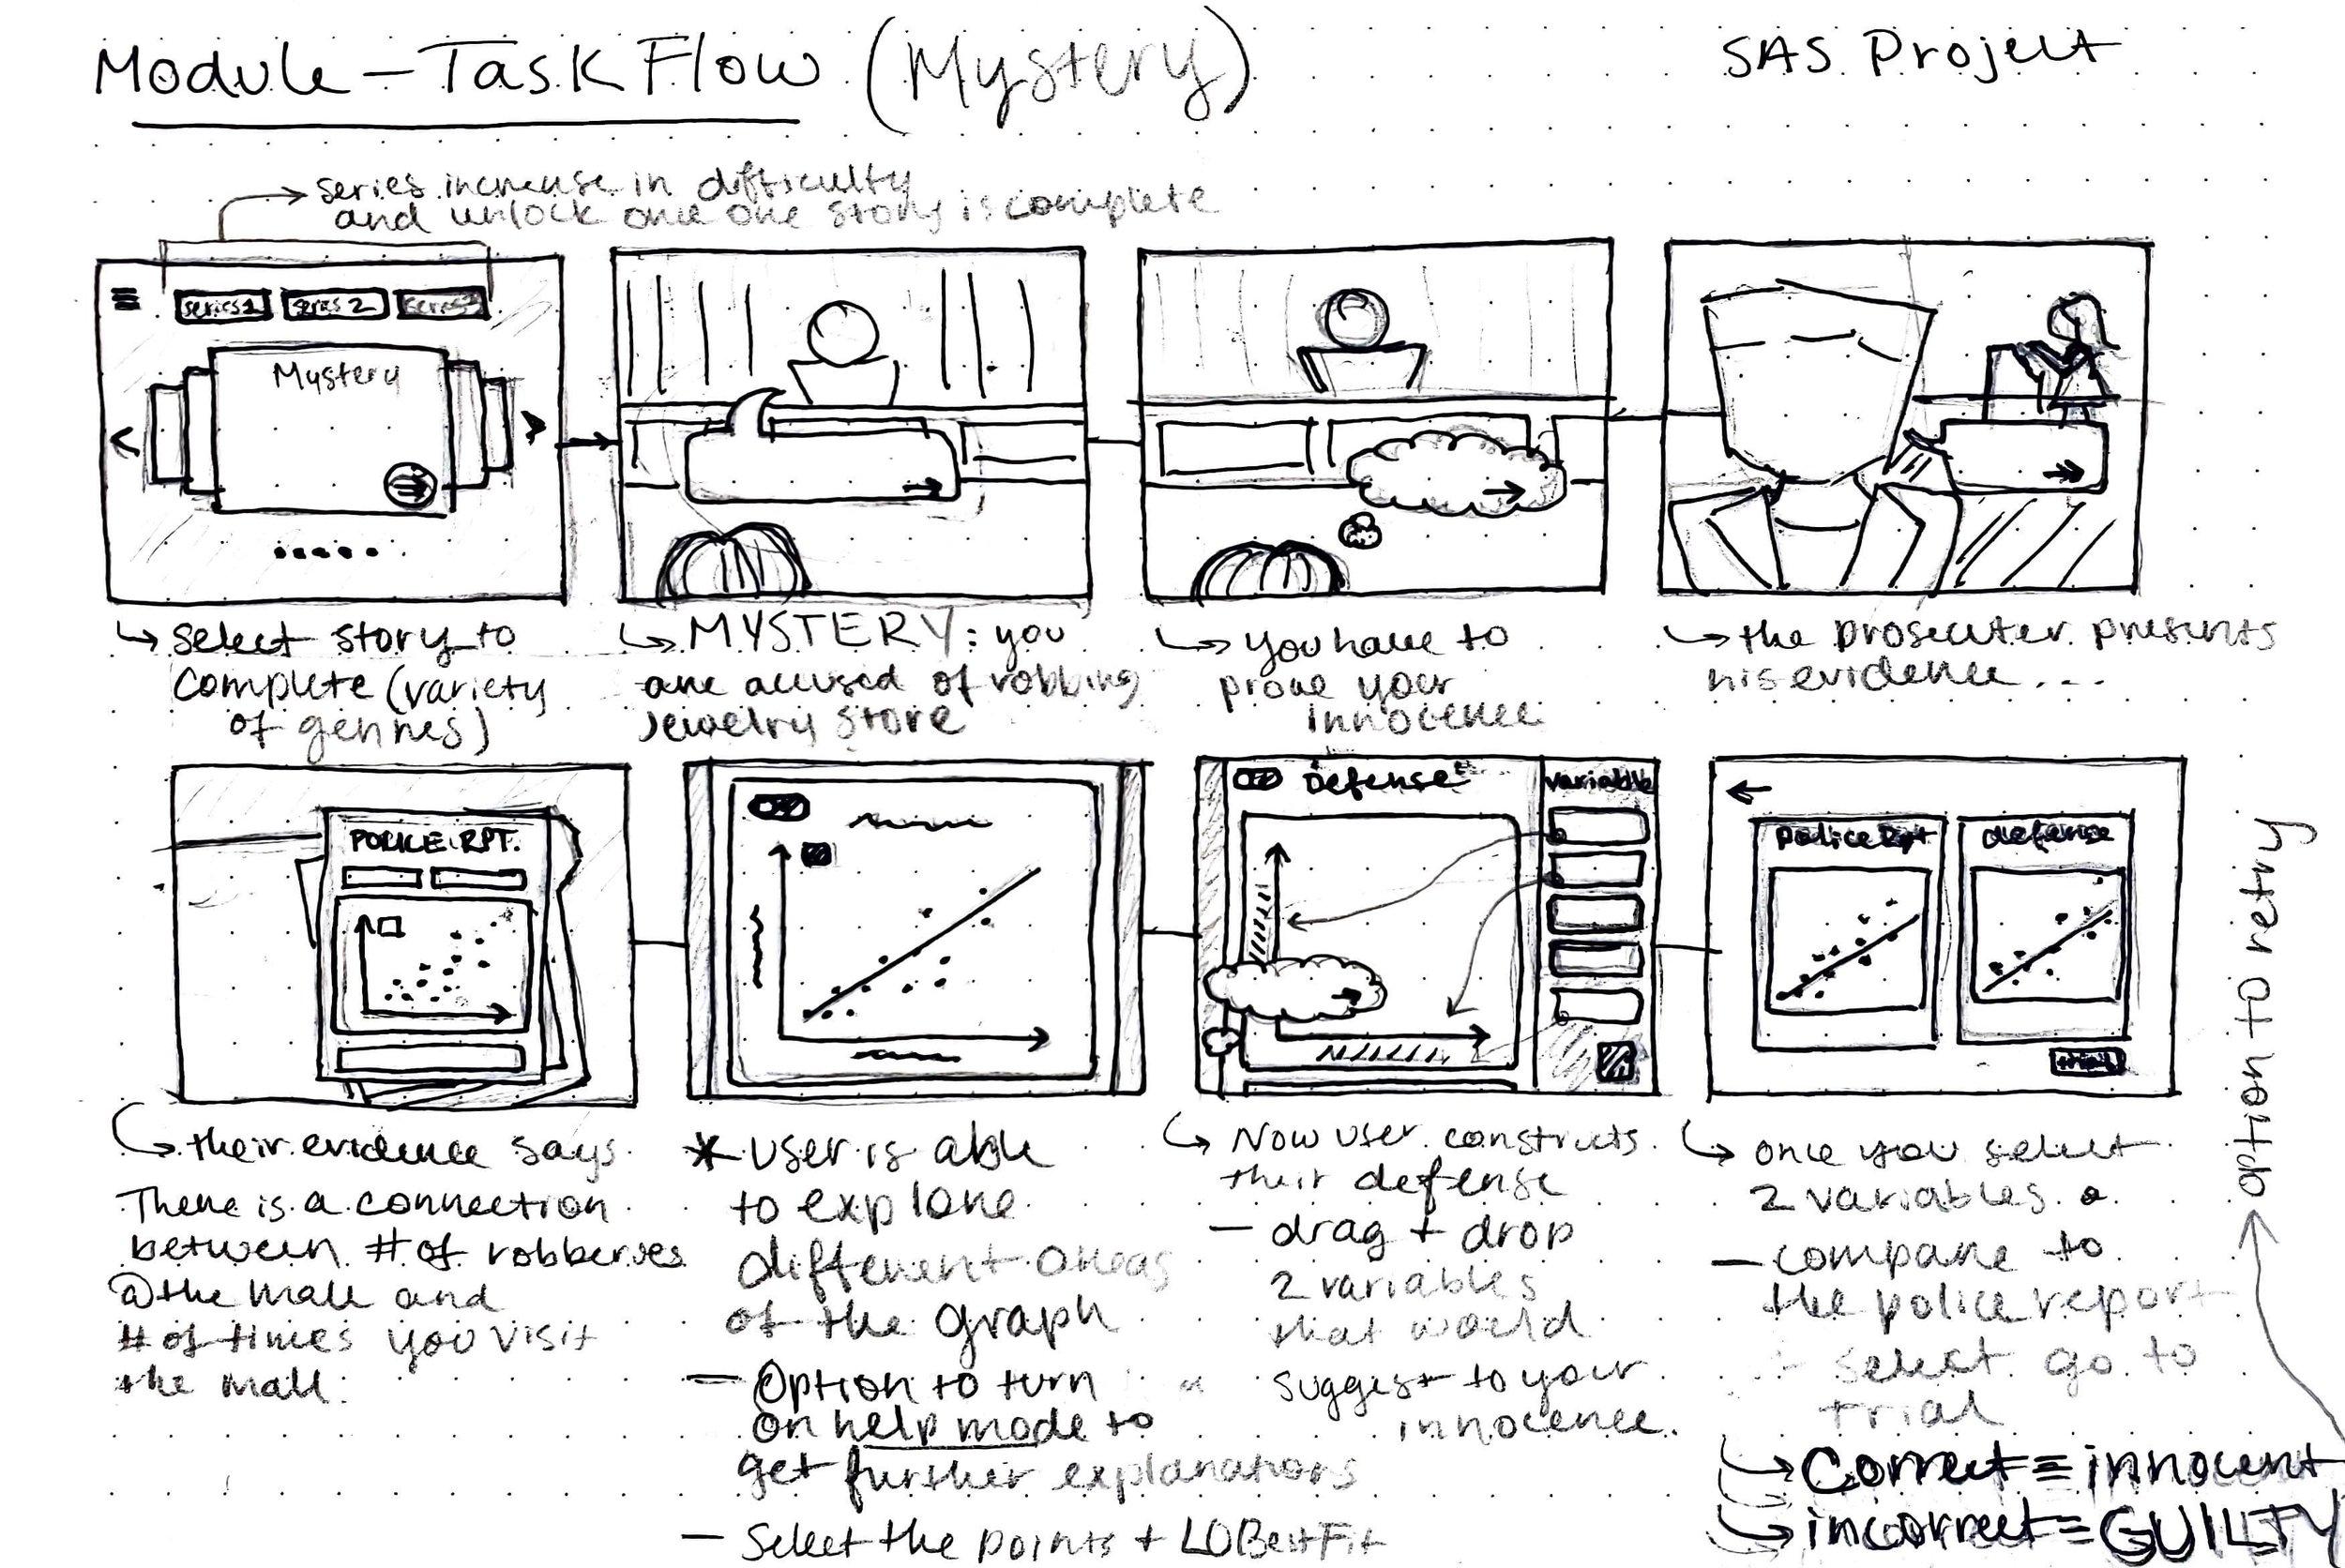 Module - Task Flow (Mystery)
SAS Project
series increase in difficulty
and unlock once one story is complete
series 1
series 2
series 3
Mystery
select story to
complete (variety
of genres)
MYSTERY: you
are accused of robbing
Jewelry store
you have to
prove your
innocence
the prosecuter presents
his evidence...
POLICE RPT.
Defense
variable
Police Rpt
defense
trial
their evidence says
There is a connection
between # of robberies
@ the mall and
# of times you visit
the mall
* User is able
to explore
different areas
of the graph
- Option to turn
on help mode to
get further explanations
- Select the points + LOBestFit
Now user constructs
their defense
- drag + drop
2 variables
that would
suggest to your
innocence.
once you select
2 variables
- compare to
the police report
+ select go to
trial
Correct = innocent
incorrect = GUILTY
option to retry